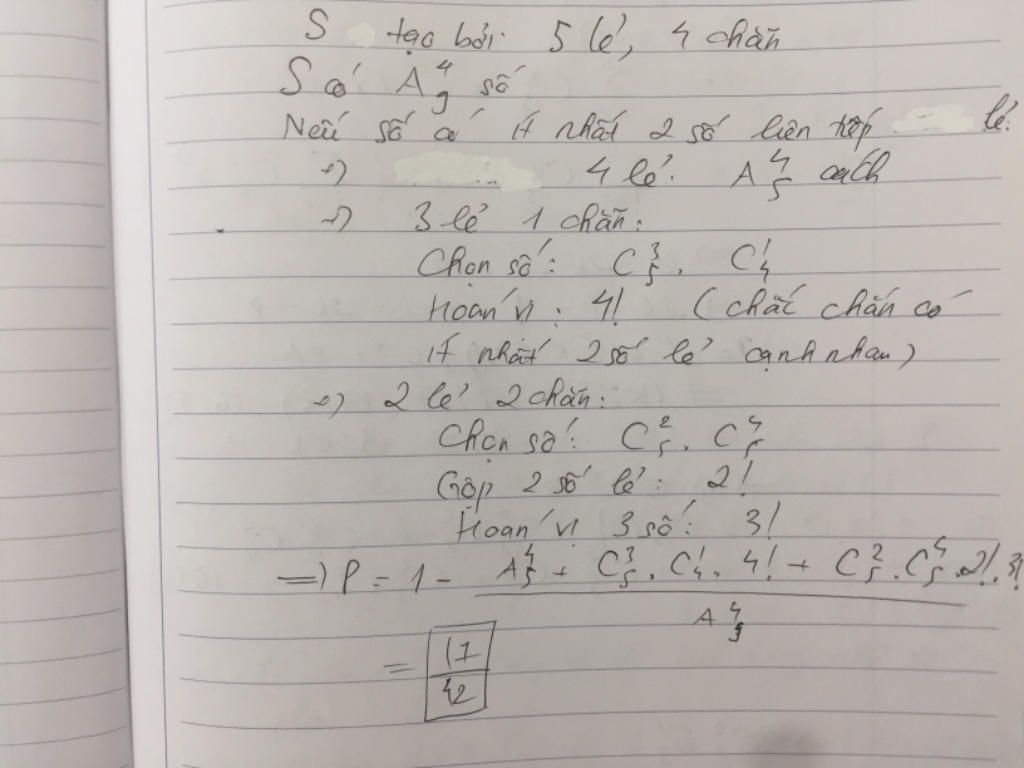 S tạo bởi: 5 lẻ, 4 chẵn
S có A⁴₉ số
Nếu số có ít nhất 2 số liên tiếp lẻ:
+) 4 lẻ: A⁴₅ cách
+) 3 lẻ 1 chẵn:
Chọn số: C³₅. C¹₄
Hoán vị: 4! (chắc chắn có
ít nhất 2 số lẻ cạnh nhau)
+) 2 lẻ 2 chẵn:
Chọn số: C²₅. C⁴₅
Gộp 2 số lẻ: 2!
Hoán vị 3 số: 3!
=> P = 1 - (A⁴₅ + C³₅. C¹₄. 4! + C²₅. C⁴₅. 2!. 3!) / A⁴₉
= 17/42